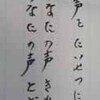 声をたいせつに
なたの声きれ
なたの声とど